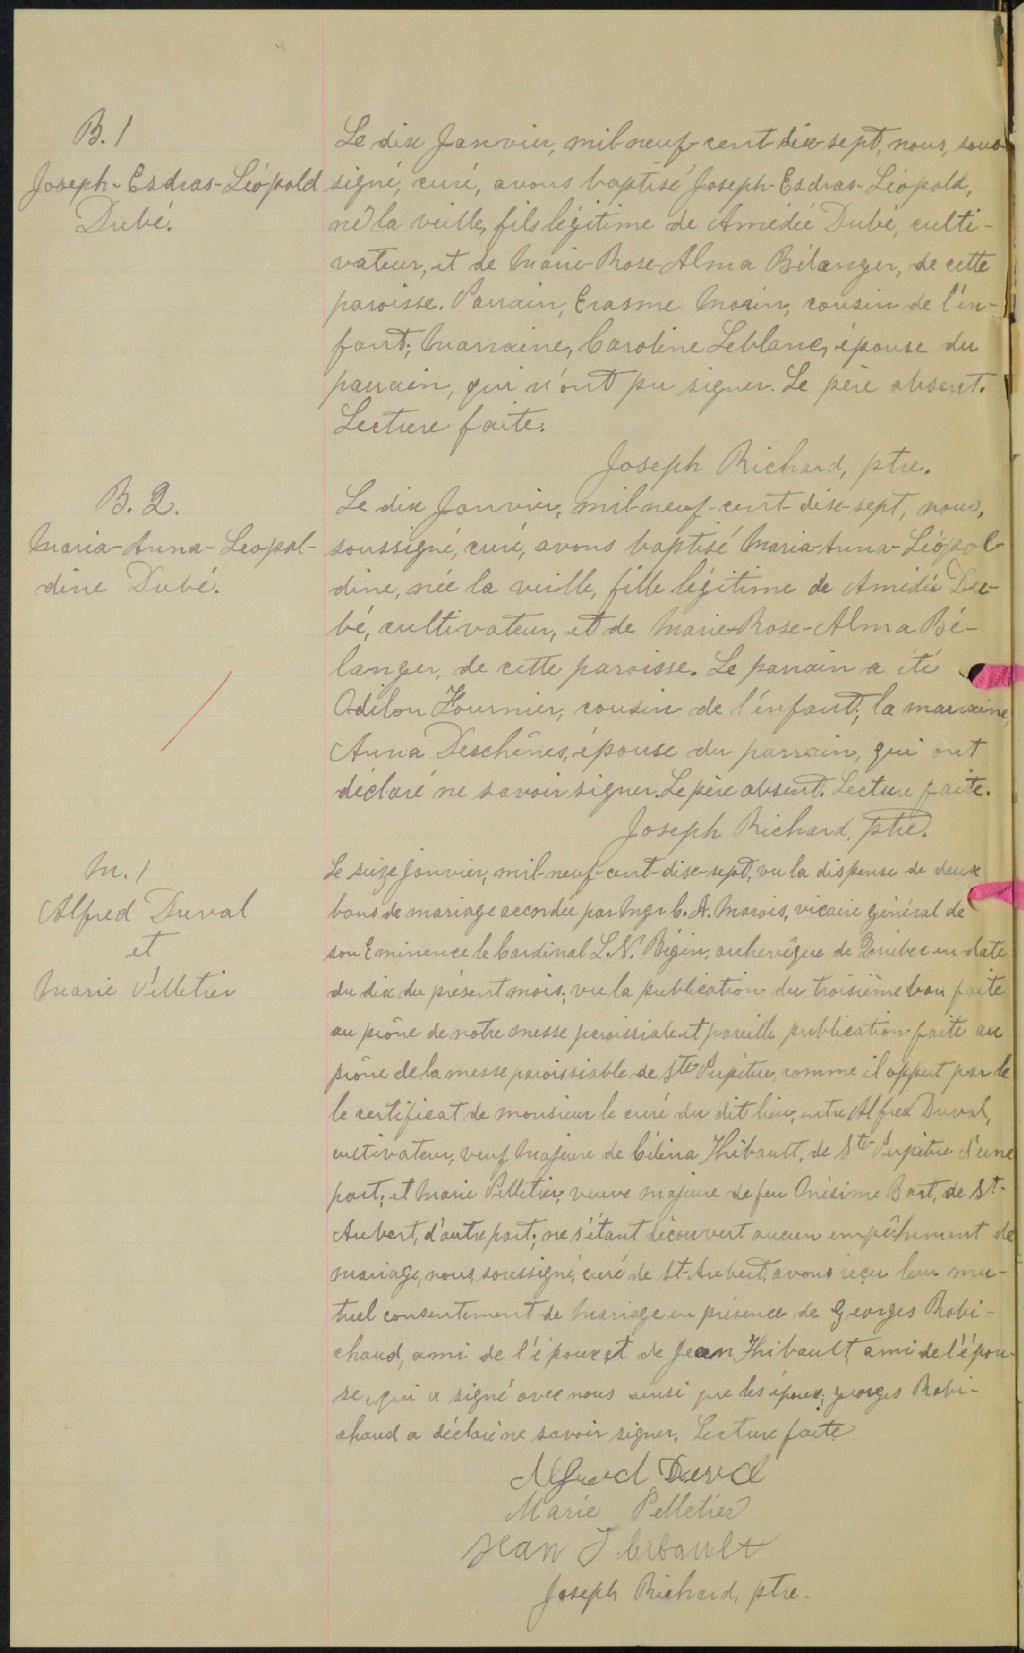 B. 1
Joseph-Esdras-Léopold
Dubé.
Le dix Janvier, mil-neuf-cent-dix-sept, nous, sous-
signé, curé, avons baptisé Joseph-Esdras-Léopold,
né la veille, fils légitime de Amédée Dubé, culti-
vateur, et de Marie-Rose-Alma Bélanger, de cette
paroisse. Parrain, Erasme Morin, cousin de l'en-
fant; Marraine, Caroline Leblanc, épouse du
parrain, qui n'ont pu signer. Le père absent.
Lecture faite.
Joseph Richard, ptre.
B. 2.
Maria-Anna-Leopol-
dine Dubé.
Le dix Janvier, mil-neuf-cent-dix-sept, nous,
soussigné, curé, avons baptisé Maria-Anna-Léopol-
dine, née la veille, fille légitime de Amédée Du-
bé, cultivateur, et de Marie-Rose-Alma Bé-
langer, de cette paroisse. Le parrain a été
Odilon Fournier, cousin de l'enfant; la marraine,
Anna Deschênes, épouse du parrain, qui ont
déclaré ne savoir signer. Le père absent. Lecture faite.
Joseph Richard, ptre.
M. 1
Alfred Duval
et
Marie Pelletier
Le seize Janvier, mil-neuf-cent-dix-sept, vu la dispense de deux
bans de mariage accordée par Mgr C. A. Marois, vicaire général de
son Eminence le Cardinal L. N. Bégin, archevêque de Québec en date
du dix du présent mois; vu la publication du troisième ban faite
au prône de notre messe paroissiale et pareille publication faite au
prône de la messe paroissiable de Ste Perpétue, comme il appert par le
le certificat de monsieur le curé du dit lieu, entre Alfred Duval,
cultivateur, veuf majeure de Célina Thibault, de Ste Perpétue d'une
part; et Marie Pelletier, veuve majeure de feu Onésime Bart, de St-
Aubert, d'autre part; ne s'étant découvert aucun empêchement de
mariage, nous, soussigné, curé de St-Aubert, avons reçu leur mu-
tuel consentement de Mariage en présence de Georges Robi-
chaud, ami de l'époux, et de Jean Thibault, ami de l'épou-
se, qui a signé avec nous ainsi que les époux; Georges Robi-
chaud a déclaré ne savoir signer. Lecture faite
Alfred Duval
Marie Pelletier
Jean Thibault
Joseph Richard, ptre.